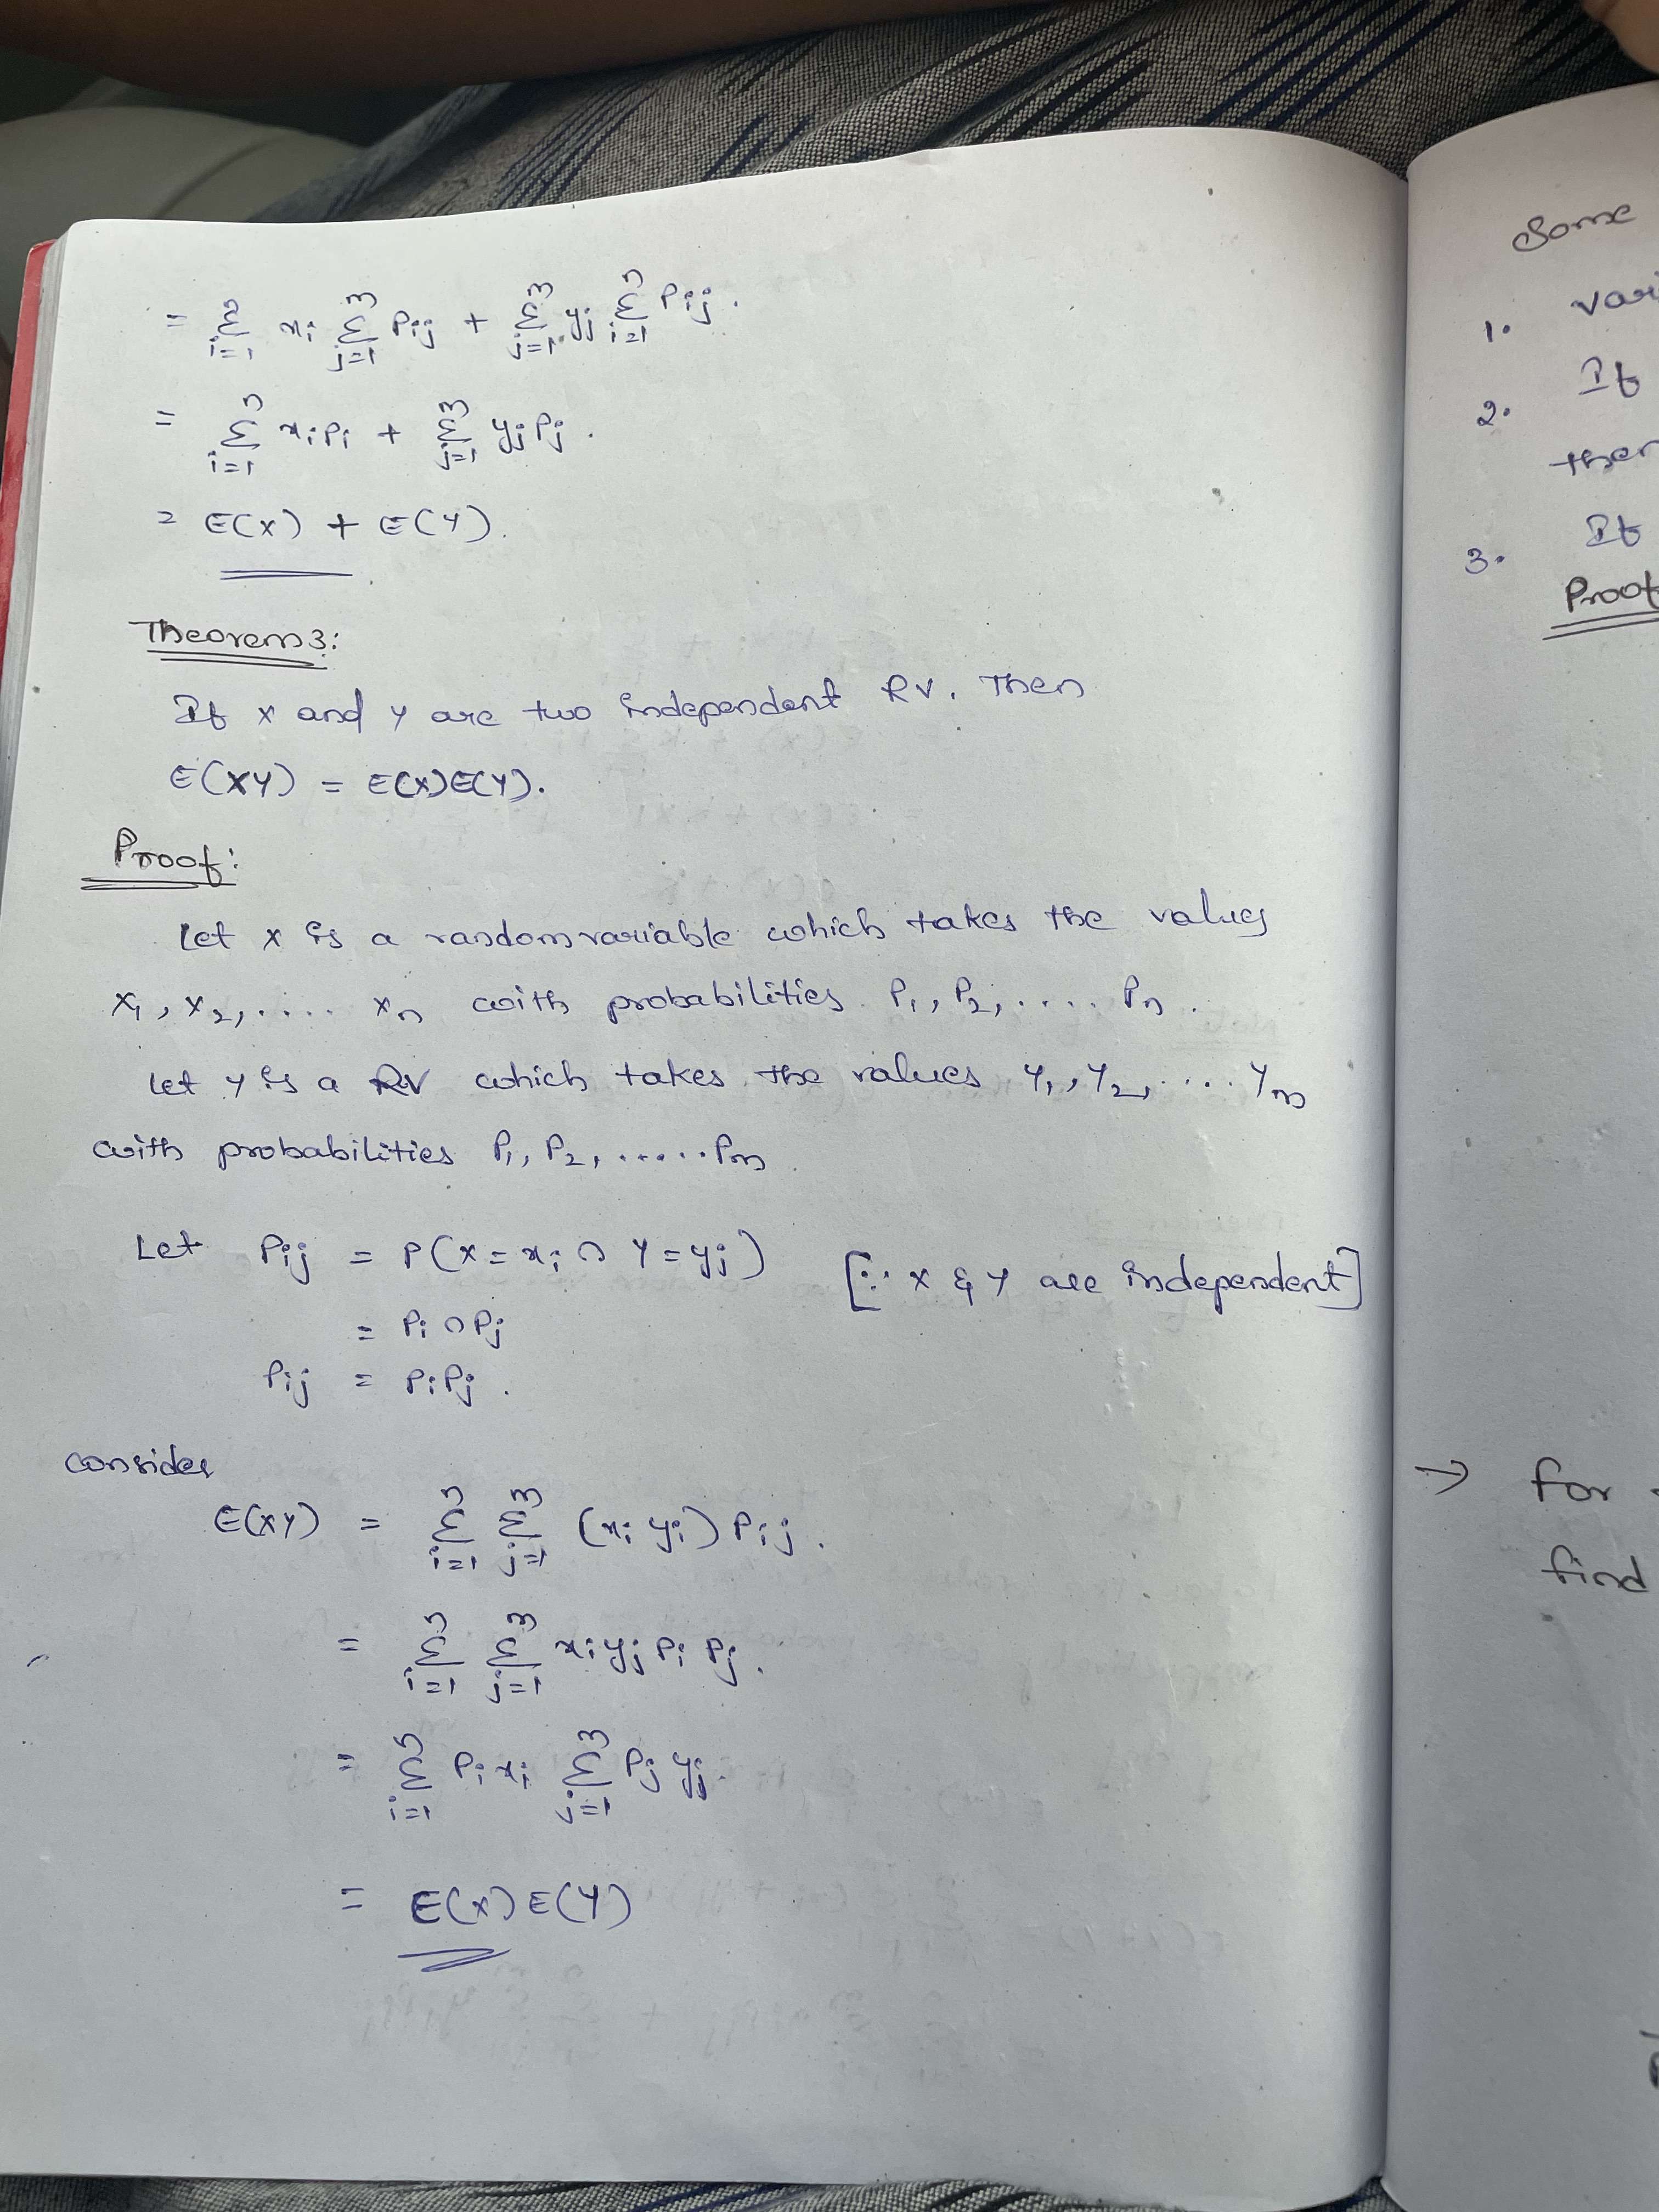 = Σ_{i=1}^{n} x_i Σ_{j=1}^{m} P_ij + Σ_{j=1}^{m} y_j Σ_{i=1}^{n} P_ij.
= Σ_{i=1}^{n} x_i P_i + Σ_{j=1}^{m} y_j P_j.
= E(X) + E(Y).
Theorem 3:
If x and y are two independent RV. Then
E(XY) = E(X)E(Y).
Proof:
Let x is a random variable which takes the values
x_1, x_2, .... x_n with probabilities P_1, P_2, .... P_n.
Let y is a RV which takes the values y_1, y_2, .... y_m
with probabilities P_1, P_2, ...... P_m.
Let P_ij = P(X = x_i ∩ Y = y_j) [∵ x & y are independent]
= P_i ∩ P_j
P_ij = P_i P_j.
consider
E(XY) = Σ_{i=1}^{n} Σ_{j=1}^{m} (x_i y_i) P_ij.
= Σ_{i=1}^{n} Σ_{j=1}^{m} x_i y_j P_i P_j.
= Σ_{i=1}^{n} P_i x_i Σ_{j=1}^{m} P_j y_j.
= E(X) E(Y)
Some
1. vari
2. If
then
3. If
Proof
→ For
find